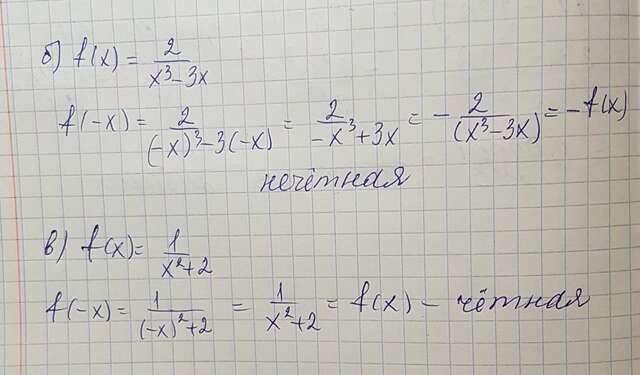 б) f(x) = 2/(x³ − 3x)
f(−x) = 2/((−x)³ − 3(−x)) = 2/(−x³ + 3x) = − 2/(x³ − 3x) = −f(x)
нечётная
в) f(x) = 1/(x² + 2)
f(−x) = 1/((−x)² + 2) = 1/(x² + 2) = f(x) − чётная